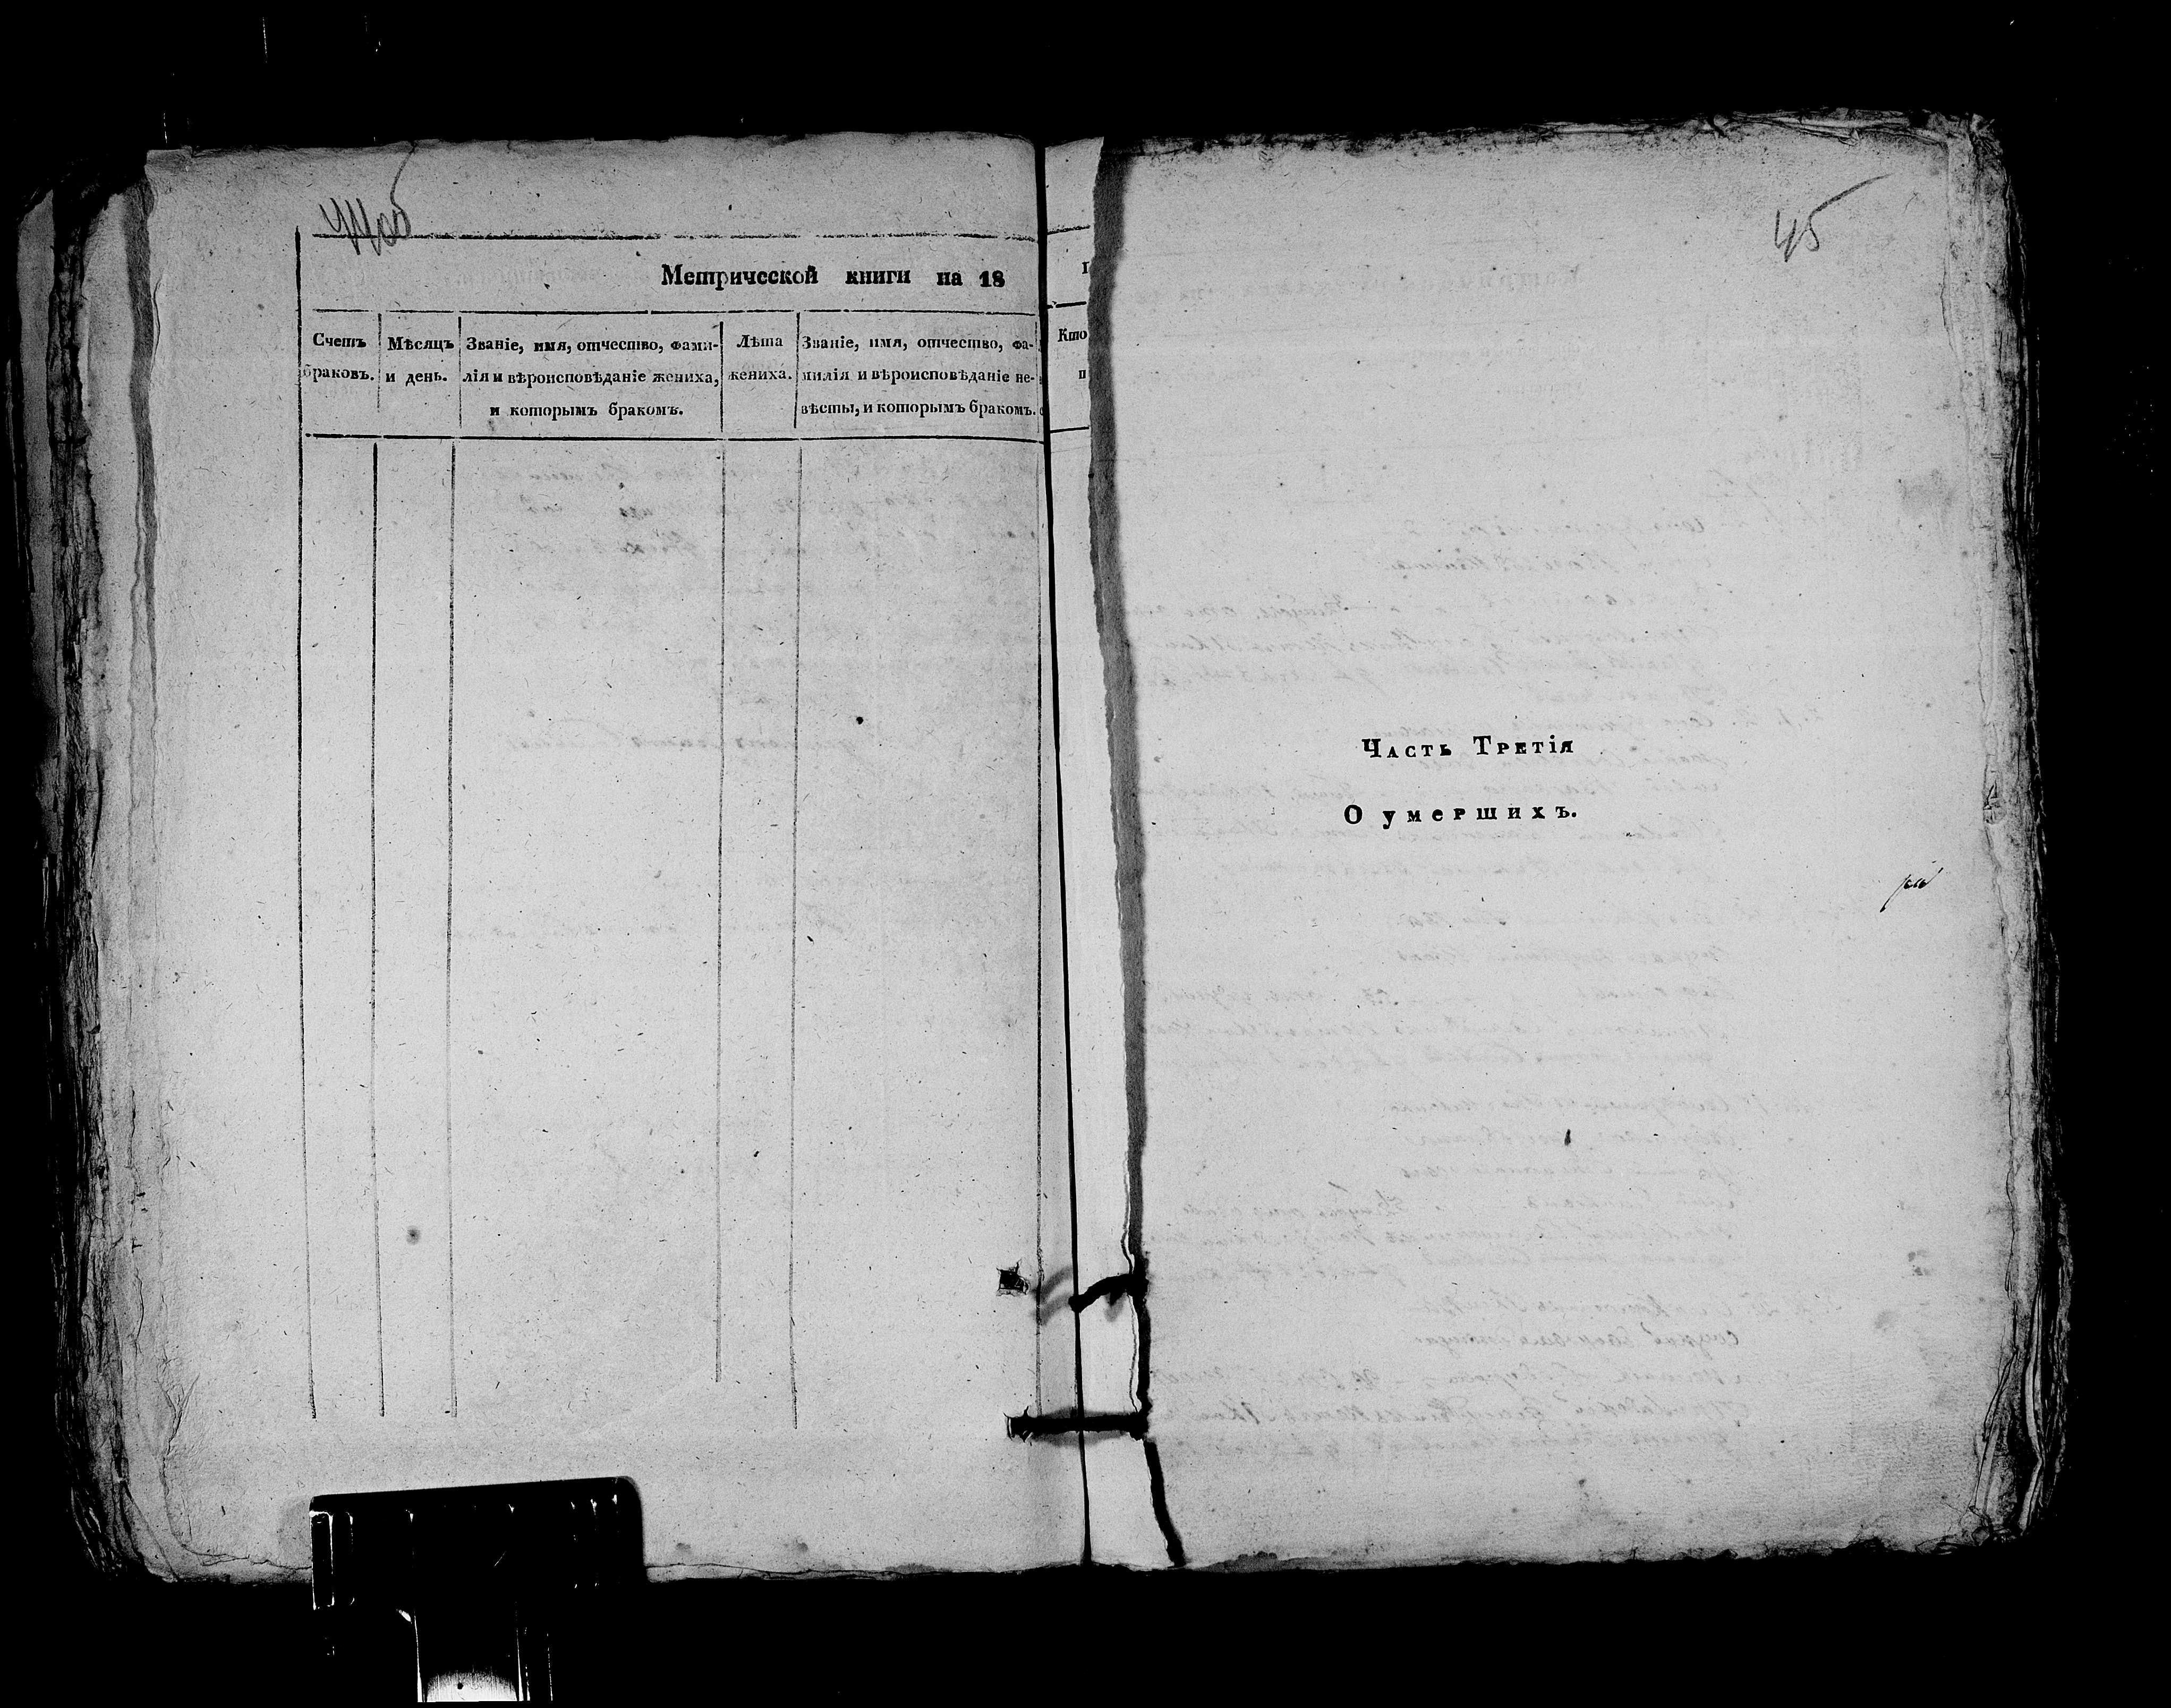 44об
Метрической книги на 18
Счетъ браковъ.
Мѣсяцъ и день.
Званіе, имя, отчество, фами-
лія и вѣроисповѣданіе жениха,
и которымъ бракомъ.
Лѣта жениха.
Званіе, имя, отчество, фа-
милія и вѣроисповѣданіе не-
вѣсты, и которымъ бракомъ.
Кто
п
45
Часть Третія
О умершихъ.